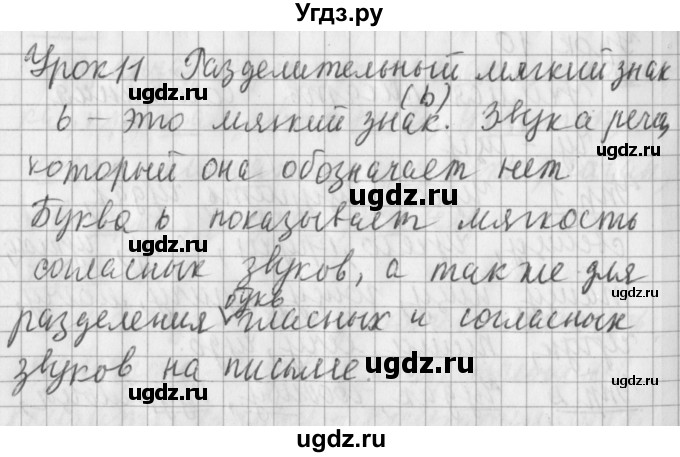 Угдз.ру
Урок 11 Разделительный мягкий знак
(ь)
ь – это мягкий знак. Звука речи,
который она обозначает нет
Буква ь показывает мягкость
согласных звуков, а также для
букв
разделения гласных и согласных
звуков на письме.
ugdz.ru
ugdz.ru
ugdz.ru
ugdz.ru
ugdz.ru
ugdz.ru
ugdz.ru
ugdz.ru
ugdz.ru
ugdz.ru
ugdz.ru